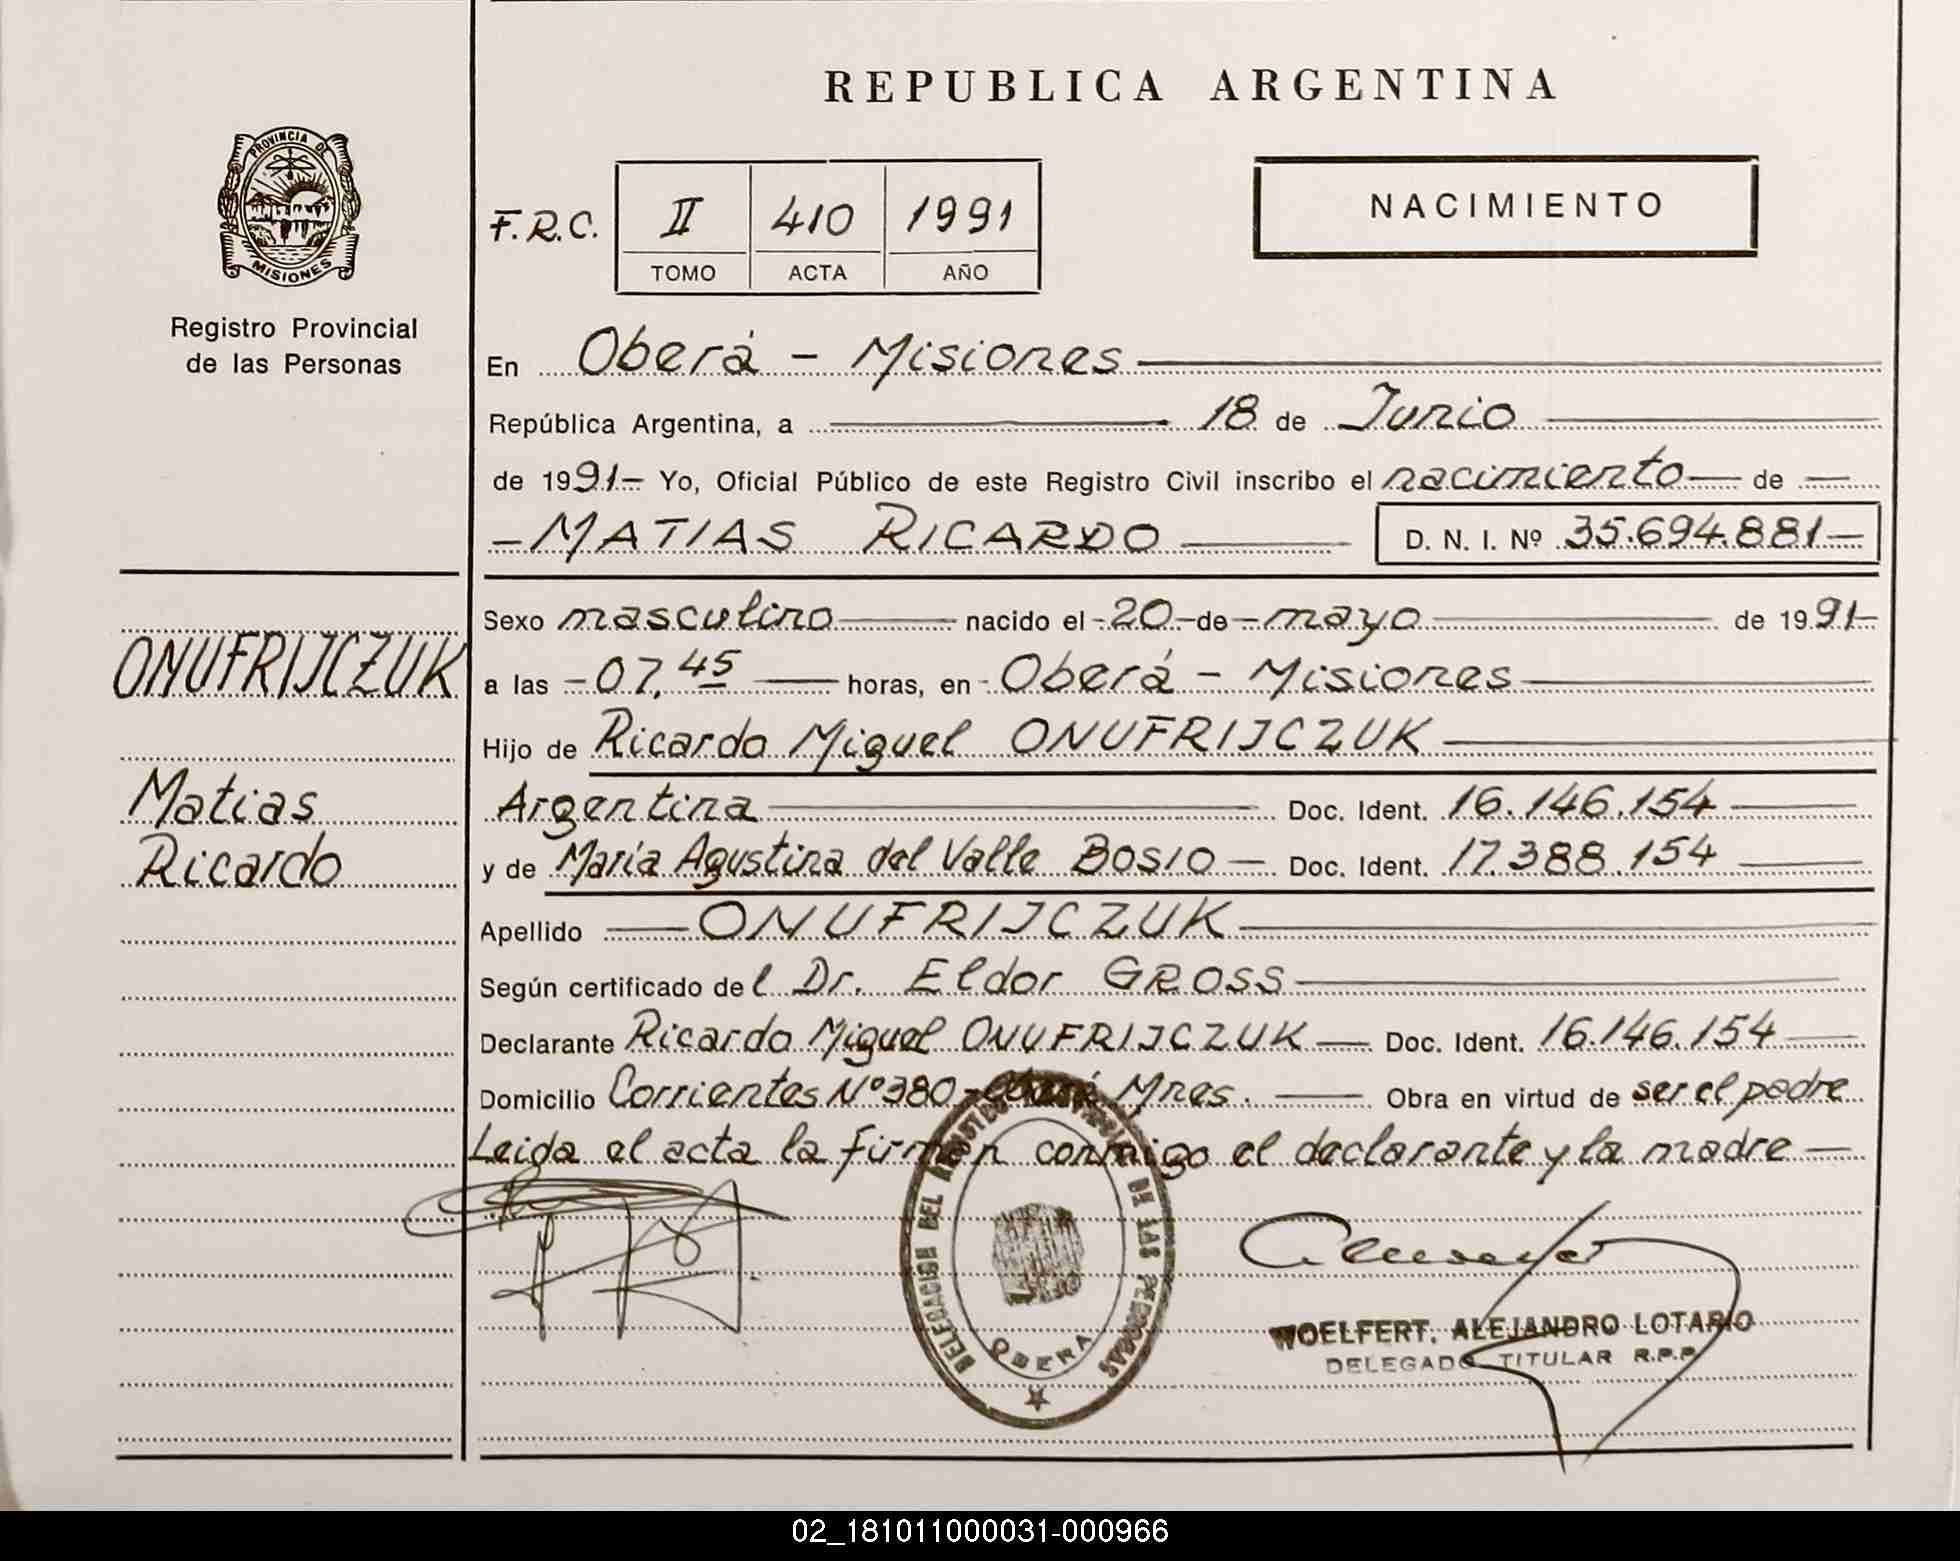 REPUBLICA ARGENTINA
PROVINCIA DE
MISIONES
Registro Provincial
de las Personas
F.R.C. II 410 1991
TOMO ACTA AÑO
NACIMIENTO
En Oberá - Misiones
República Argentina, a 18 de Junio
de 1991- Yo, Oficial Público de este Registro Civil inscribo el nacimiento de
- MATIAS RICARDO D. N. I. Nº 35.694.881-
Sexo masculino nacido el - 20 - de - mayo de 1991-
ONUFRIJCZUK
a las - 07,45 horas, en - Oberá - Misiones
Hijo de Ricardo Miguel ONUFRIJCZUK
Matias
Argentina Doc. Ident. 16.146.154
Ricardo
y de María Agustina del Valle BOSIO - Doc. Ident. 17.388.154
Apellido ONUFRIJCZUK
Según certificado del Dr. Eldor GROSS
Declarante Ricardo Miguel ONUFRIJCZUK - Doc. Ident. 16.146.154
Domicilio Corrientes Nº 380 - Oberá Mnes. Obra en virtud de ser el padre
Leida el acta la firman conmigo el declarante y la madre -
DELEGACION DEL REGISTRO DE LAS PERSONAS
OBERA
WOELFERT, ALEJANDRO LOTARIO
DELEGADO TITULAR R.P.P.
02_181011000031-000966